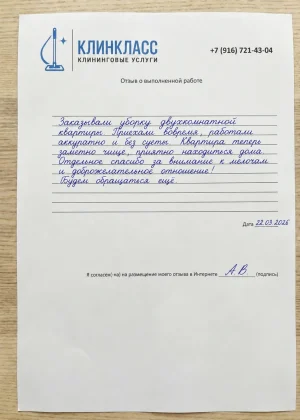 КЛИНКЛАСС
КЛИНИНГОВЫЕ УСЛУГИ
+7 (916) 721-43-04
Отзыв о выполненной работе
Заказывали уборку двухкомнатной
квартиры. Приехали вовремя, работали
аккуратно и без суеты. Квартира теперь
заметно чище, приятно находиться дома.
Отдельное спасибо за внимание к мелочам
и доброжелательное отношение!
Будем обращаться ещё.
Дата 22.03.2026
Я согласен(-на) на размещение моего отзыва в Интернете А.В. (подпись)